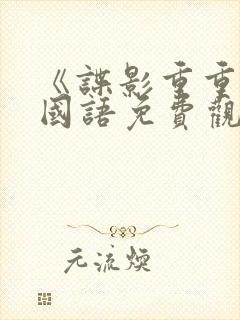 《諜影重重
國語免費觀
元流煥